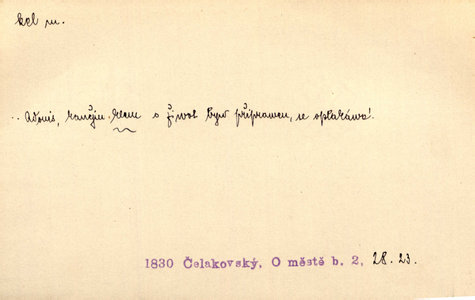 kel m.
.. Adonis, kančjm kelem o žiwot byw připrawen, se oplakáwá!
1830 Čelakovský, O městě b. 2, 28.23.